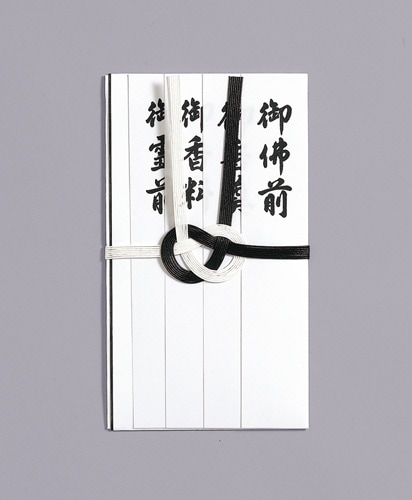 御佛前
御香料
御霊前